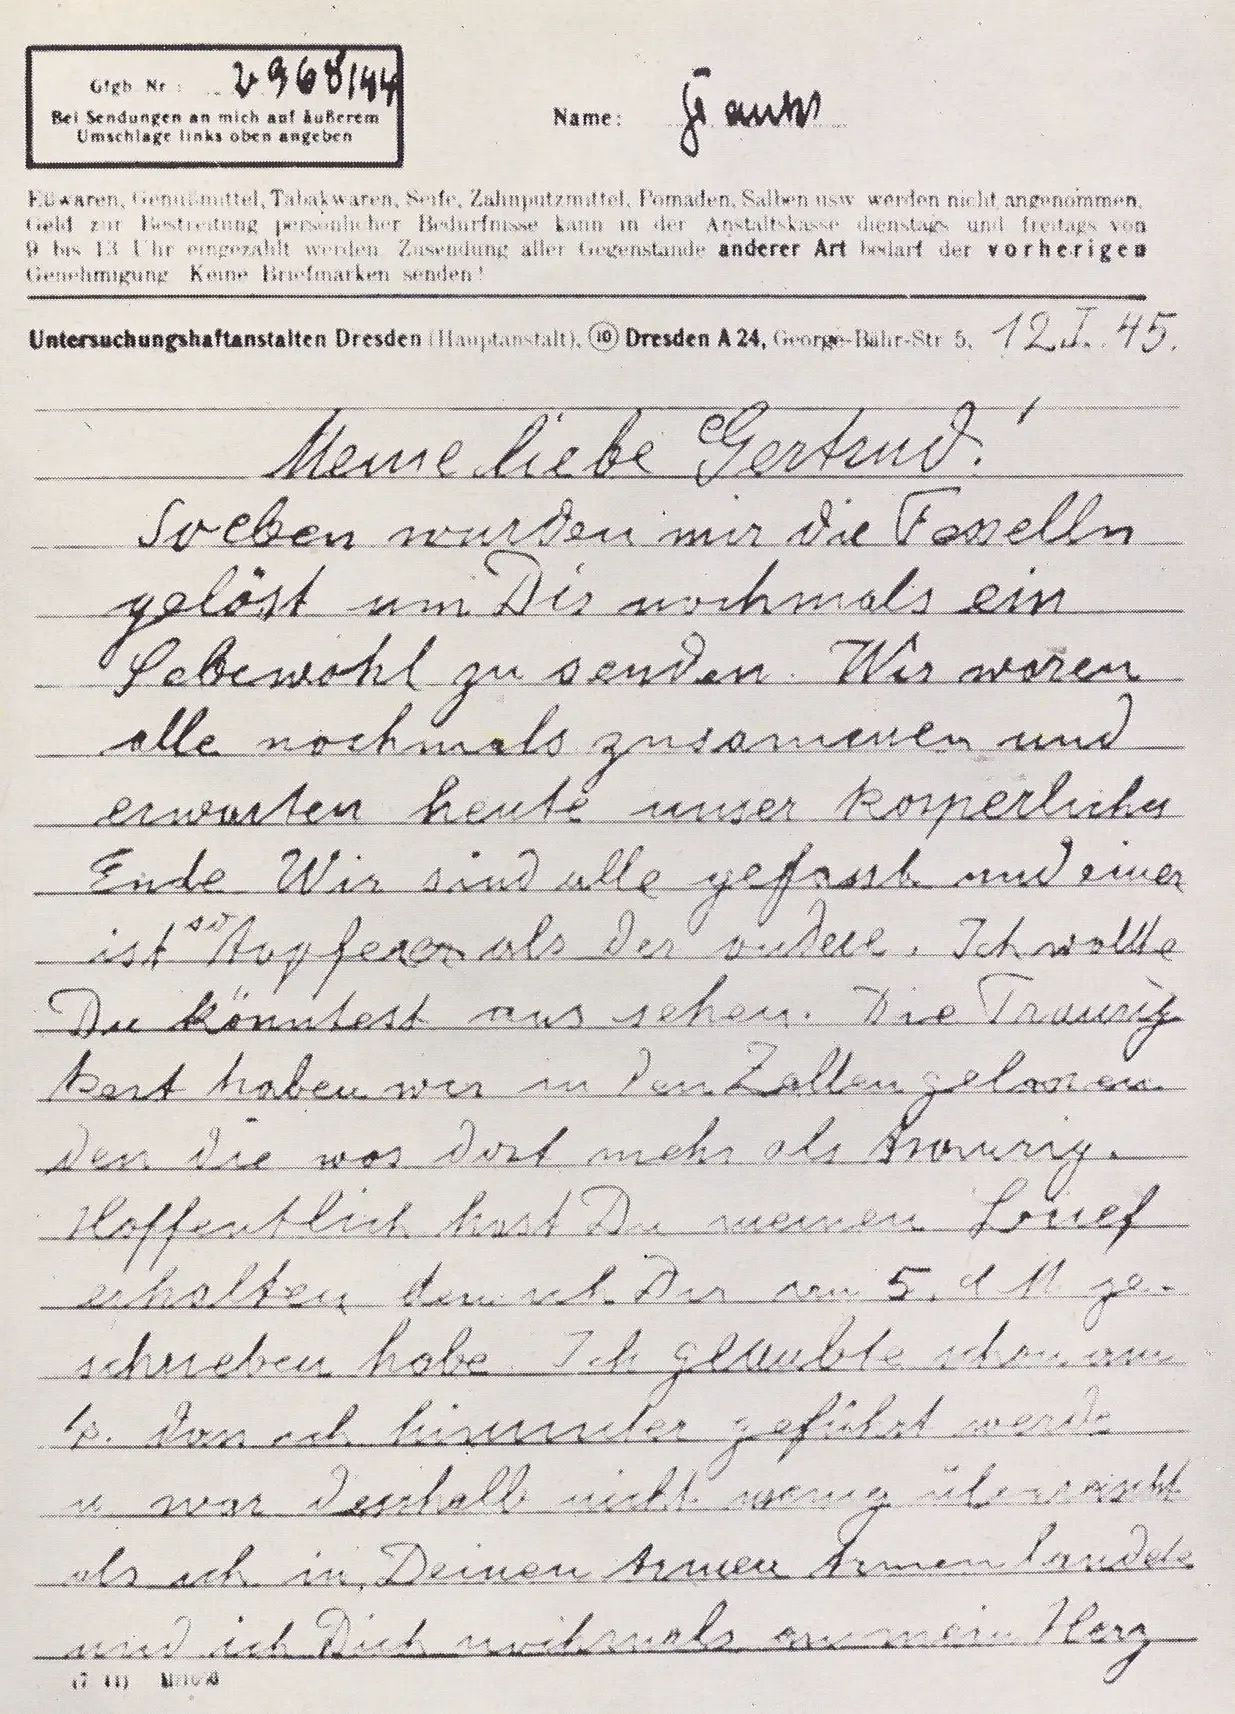 Gfgb. Nr.: 2968/44
Bei Sendungen an mich auf äußerem
Umschlage links oben angeben
Name:
Eßwaren, Genußmittel, Tabakwaren, Seife, Zahnputzmittel, Pomaden, Salben usw. werden nicht angenommen.
Geld zur Bestreitung persönlicher Bedürfnisse kann in der Anstaltskasse dienstags und freitags von
9 bis 13 Uhr eingezahlt werden. Zusendung aller Gegenstände anderer Art bedarf der vorherigen
Genehmigung. Keine Briefmarken senden!
Untersuchungshaftanstalten Dresden (Hauptanstalt), (10) Dresden A 24, George-Bähr-Str 5, 12. I. 45.
Meine liebe Gertrud!
Soeben wurden mir die Fesselln
gelöst um Dir nochmals ein
Lebewohl zu senden. Wir waren
alle nochmals zusammen und
erwarten heute unser körperliches
Ende Wir sind alle gefasst und einer
ist so tapferer als der andere. Ich wollte
Du könntest uns sehen. Die Traurig
keit haben wir in den Zellen gelassen
den die war dort mehr als traurig.
Hoffentlich hast Du meinen Brief
erhalten den ich Dir am 5. d M ge-
schrieben habe. Ich glaubte schon am
das ich hinunter geführt werde
u war deshalb nicht wenig überrascht
als ich in Deinen Armen Armen landete
und ich Dich nochmals an mein Herz
(7. 44)